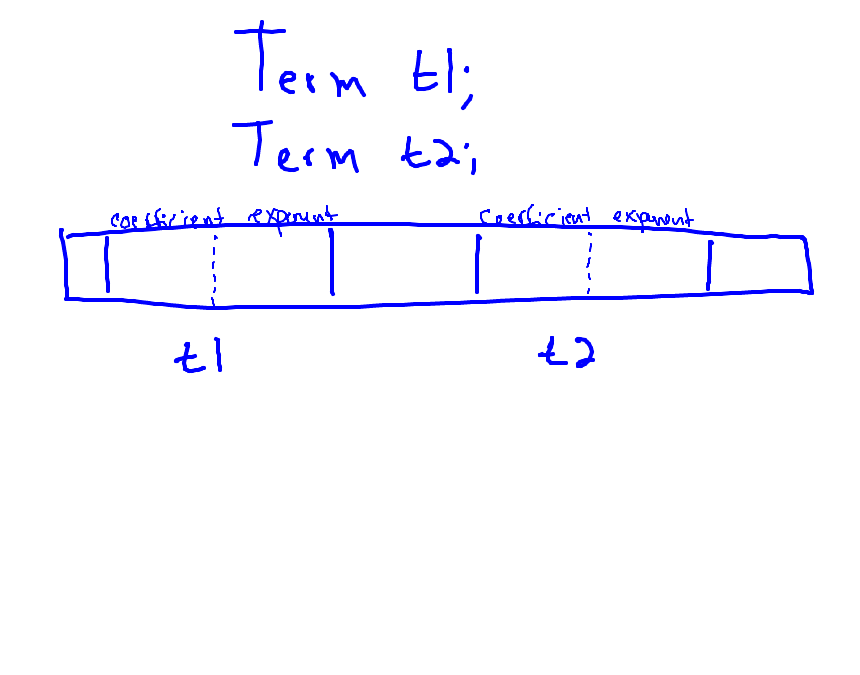 Term t1;
Term t2;
coefficient exponent coefficient exponent
t1 t2